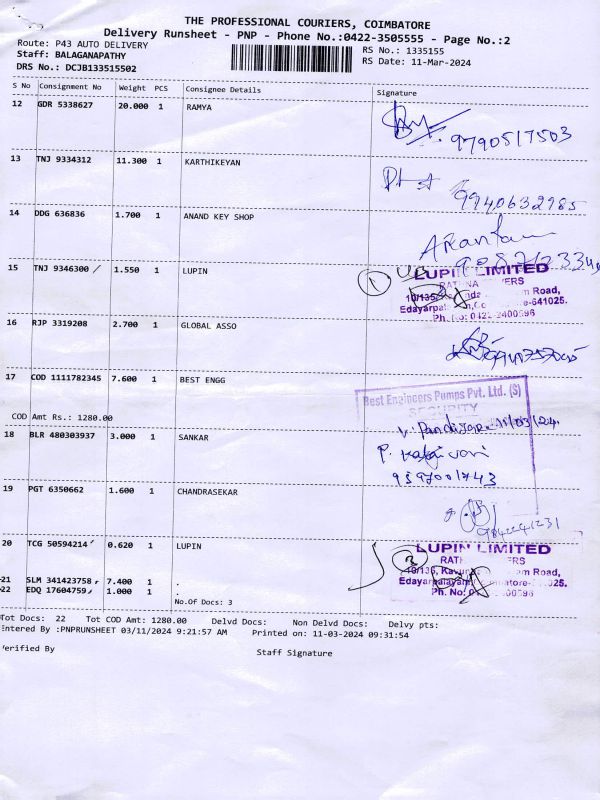 THE PROFESSIONAL COURIERS, COIMBATORE
Delivery Runsheet - PNP - Phone No.:0422-3505555 - Page No.:2
Route: P43 AUTO DELIVERY
RS No.: 1335155
Staff: BALAGANAPATHY
RS Date: 11-Mar-2024
DRS No.: DCJB133515502
S No Consignment No Weight PCS Consignee Details Signature
12 GDR 5338627 20.000 1 RAMYA
9790517503
13 TNJ 9334312 11.300 1 KARTHIKEYAN
9940632985
14 DDG 636836 1.700 1 ANAND KEY SHOP
15 TNJ 9346300 1.550 1 LUPIN
1
LUPIN LIMITED
Road,
Edayarpal -641025.
Ph. No: 0422-2400596
16 RJP 3319208 2.700 1 GLOBAL ASSO
17 COD 1111782345 7.600 1 BEST ENGG
Best Engineers Pumps Pvt. Ltd. (S)
SECURITY
11/03/24
COD Amt Rs.: 1280.00
18 BLR 480303937 3.000 1 SANKAR
19 PGT 6350662 1.600 1 CHANDRASEKAR
9842241231
20 TCG 50594214 0.620 1 LUPIN
LUPIN LIMITED
Road,
Edayarpalayam
Ph. No:
21 SLM 341423758 7.400 1 .
22 EDQ 17604759 1.000 1 .
No.Of Docs: 3
Tot Docs: 22 Tot COD Amt: 1280.00 Delvd Docs: Non Delvd Docs: Delvy pts:
Entered By :PNPRUNSHEET 03/11/2024 9:21:57 AM Printed on: 11-03-2024 09:31:54
Verified By
Staff Signature